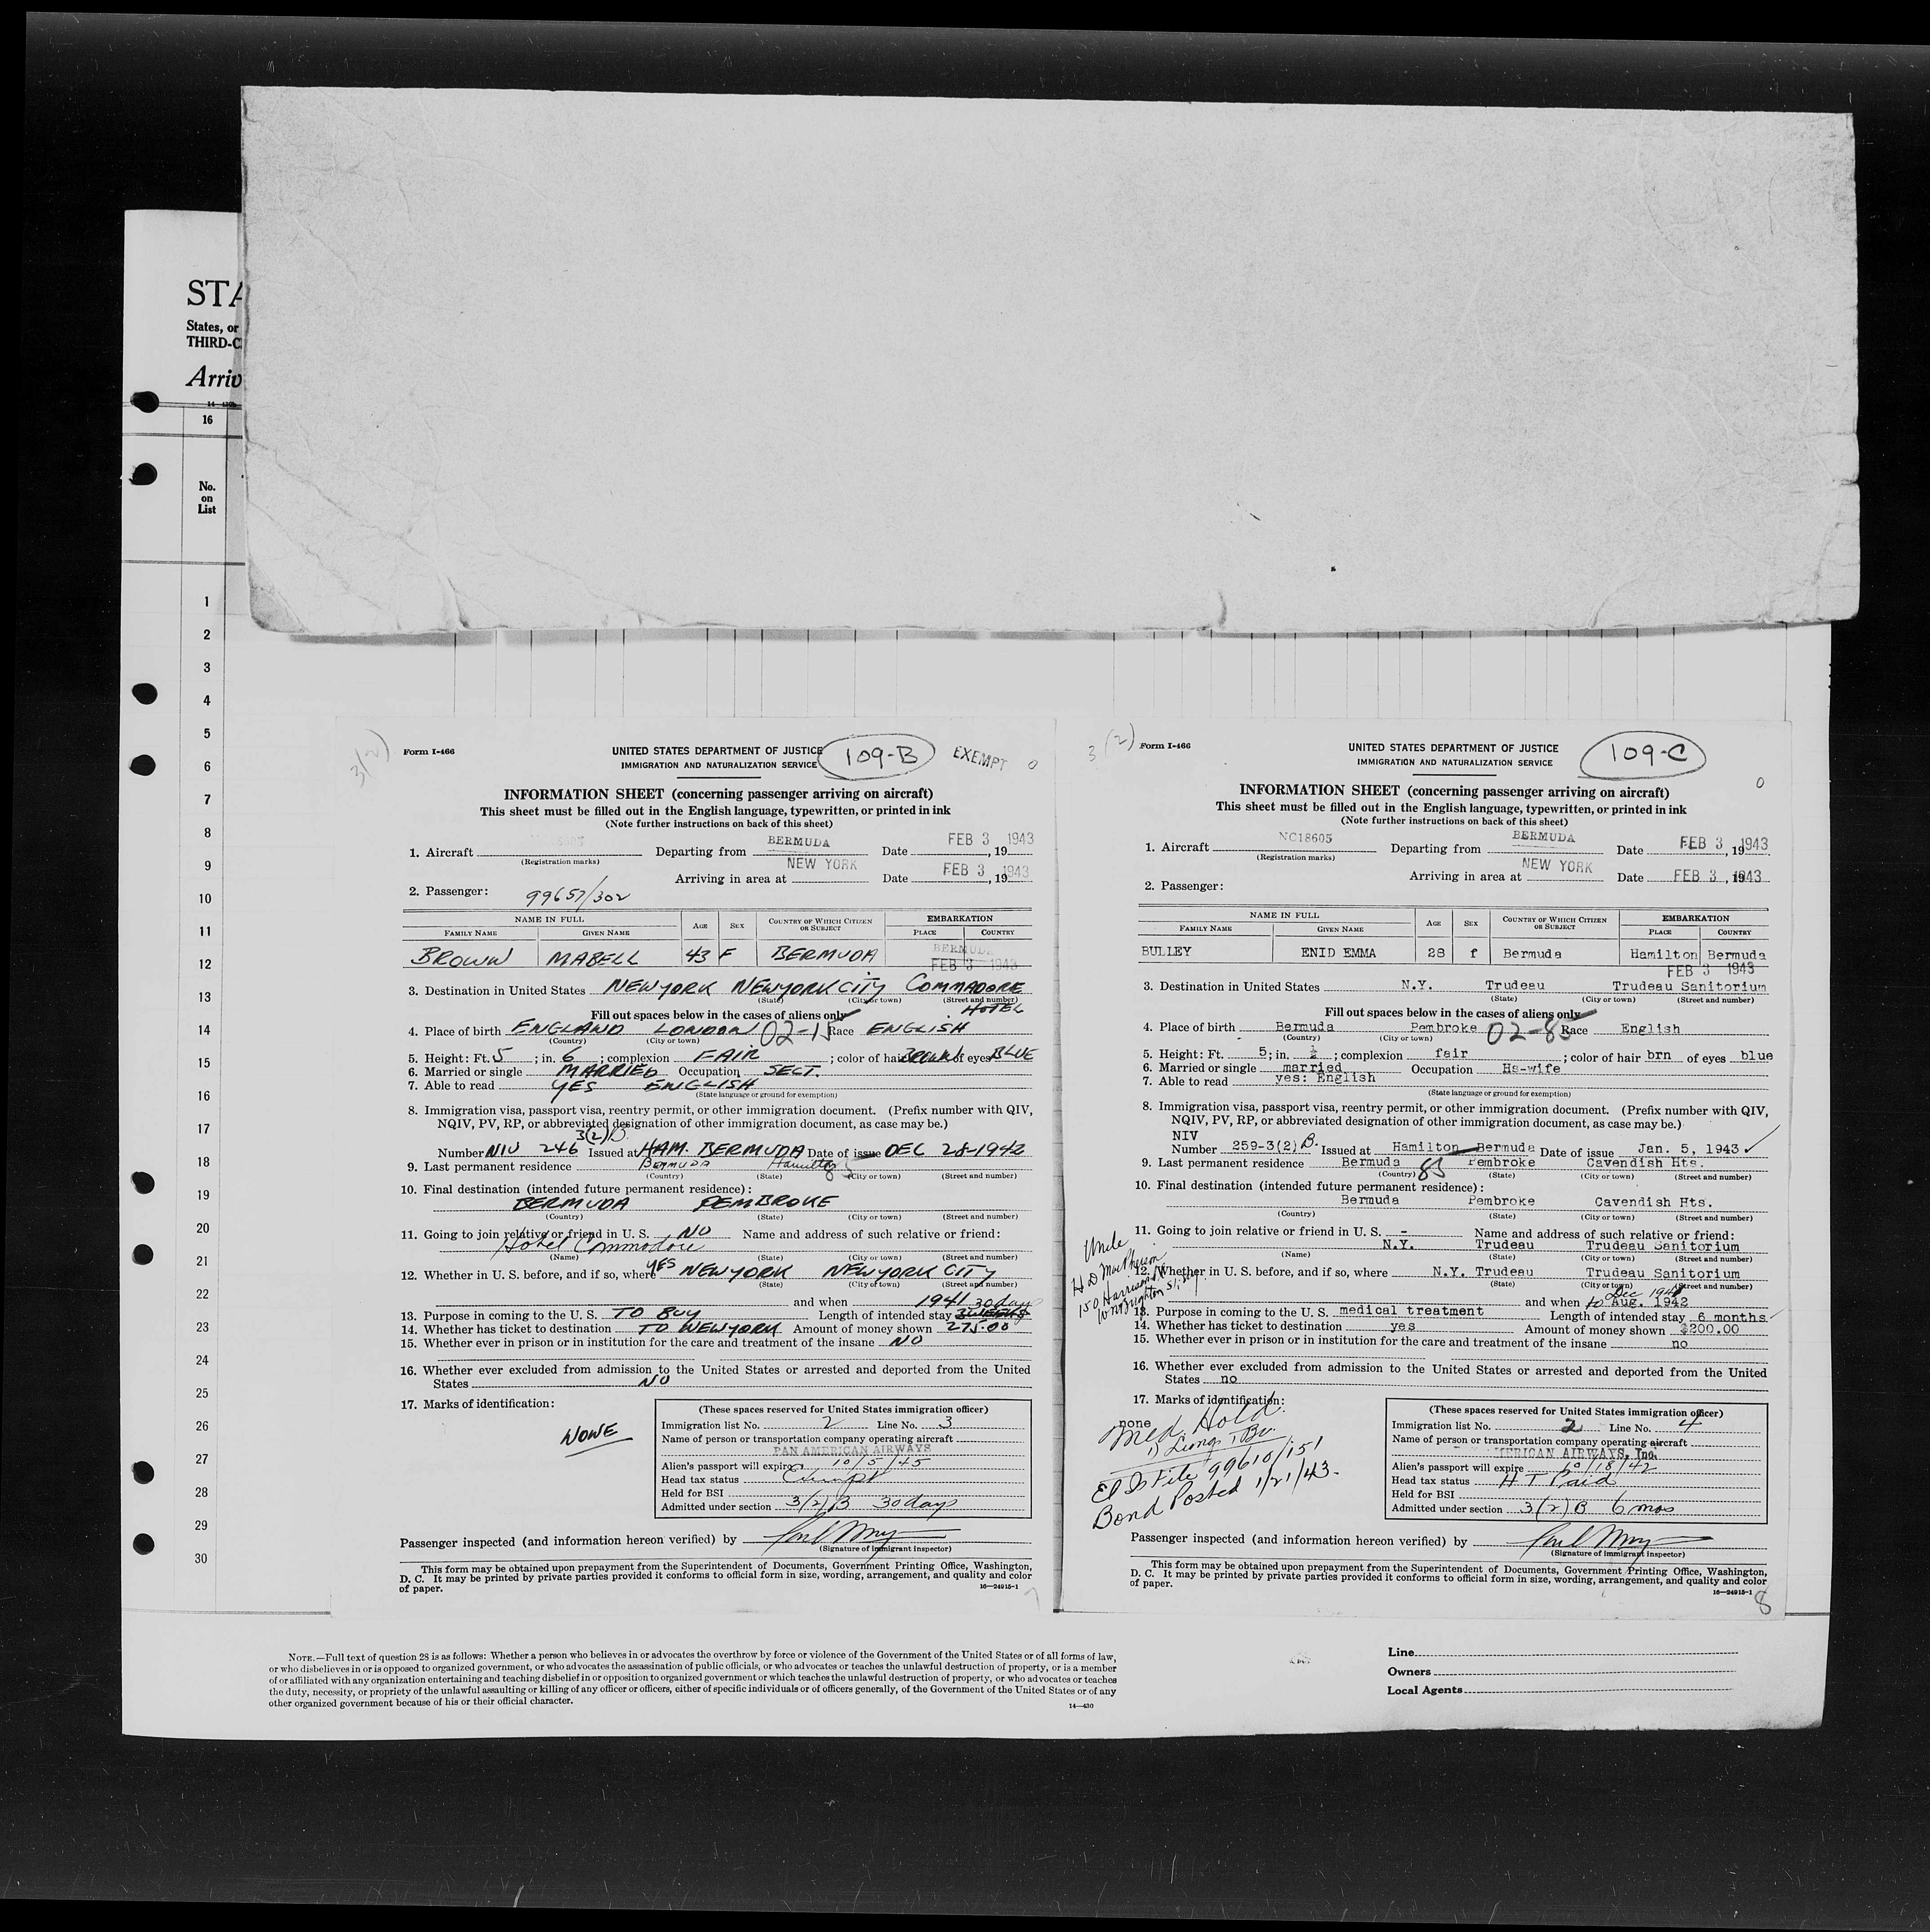 STA
States, or
THIRD-C
Arriv
14-430b
16
No.
on
List
1
2
3
4
5
6
7
8
9
10
11
12
13
14
15
16
17
18
19
20
21
22
23
24
25
26
27
28
29
30
3(2)
Form I-466
UNITED STATES DEPARTMENT OF JUSTICE
IMMIGRATION AND NATURALIZATION SERVICE
109-B
EXEMPT 0
INFORMATION SHEET (concerning passenger arriving on aircraft)
This sheet must be filled out in the English language, typewritten, or printed in ink
(Note further instructions on back of this sheet)
1. Aircraft Departing from BERMUDA Date FEB 3 1943, 19
(Registration marks)
Arriving in area at NEW YORK Date FEB 3 1943, 19
2. Passenger: 99657/302
NAME IN FULL AGE SEX COUNTRY OF WHICH CITIZEN OR SUBJECT EMBARKATION
FAMILY NAME GIVEN NAME PLACE COUNTRY
BROWN MABELL 43 F BERMUDA BERMUDA
FEB 3 1943
3. Destination in United States NEW YORK NEW YORK CITY COMMADORE
(State) (City or town) (Street and number)
HOTEL
Fill out spaces below in the cases of aliens only
4. Place of birth ENGLAND LONDON 02-15 Race ENGLISH
(Country) (City or town)
5. Height: Ft. 5; in. 6; complexion FAIR; color of hair BROWN of eyes BLUE
6. Married or single MARRIED Occupation SECT.
7. Able to read YES ENGLISH
(State language or ground for exemption)
8. Immigration visa, passport visa, reentry permit, or other immigration document. (Prefix number with QIV,
NQIV, PV, RP, or abbreviated designation of other immigration document, as case may be.)
3(2)B.
Number NIV 246 Issued at HAM. BERMUDA Date of issue DEC 28-1942
9. Last permanent residence BERMUDA Hamilton 85
(Country) (State) (City or town) (Street and number)
10. Final destination (intended future permanent residence):
BERMUDA PEMBROKE
(Country) (State) (City or town) (Street and number)
11. Going to join relative or friend in U. S. NO Name and address of such relative or friend:
Hotel Commodore
(Name) (State) (City or town) (Street and number)
12. Whether in U. S. before, and if so, where YES NEW YORK NEW YORK CITY
(State) (City or town) (Street and number)
and when 1941 30 days
13. Purpose in coming to the U. S. TO BUY Length of intended stay 3 WEEKS
14. Whether has ticket to destination TO NEW YORK Amount of money shown 275.00
15. Whether ever in prison or in institution for the care and treatment of the insane NO
16. Whether ever excluded from admission to the United States or arrested and deported from the United
States NO
17. Marks of identification:
NONE
(These spaces reserved for United States immigration officer)
Immigration list No. 2 Line No. 3
Name of person or transportation company operating aircraft
PAN AMERICAN AIRWAYS
Alien's passport will expire 10/5/45
Head tax status Exempt
Held for BSI
Admitted under section 3(2)B 30 days
Passenger inspected (and information hereon verified) by
(Signature of immigrant inspector)
This form may be obtained upon prepayment from the Superintendent of Documents, Government Printing Office, Washington,
D. C. It may be printed by private parties provided it conforms to official form in size, wording, arrangement, and quality and color
of paper.
16—24915-1
7
3(2)
Form I-466
UNITED STATES DEPARTMENT OF JUSTICE
IMMIGRATION AND NATURALIZATION SERVICE
109-C
0
INFORMATION SHEET (concerning passenger arriving on aircraft)
This sheet must be filled out in the English language, typewritten, or printed in ink
(Note further instructions on back of this sheet)
1. Aircraft NC18605 Departing from BERMUDA Date FEB 3, 1943
(Registration marks)
Arriving in area at NEW YORK Date FEB 3, 1943
2. Passenger:
NAME IN FULL AGE SEX COUNTRY OF WHICH CITIZEN OR SUBJECT EMBARKATION
FAMILY NAME GIVEN NAME PLACE COUNTRY
BULLEY ENID EMMA 28 f Bermuda Hamilton Bermuda
FEB 3 1943
3. Destination in United States N.Y. Trudeau Trudeau Sanitorium
(State) (City or town) (Street and number)
Fill out spaces below in the cases of aliens only
4. Place of birth Bermuda Pembroke 02-85 Race English
(Country) (City or town)
5. Height: Ft. 5; in. ½; complexion fair; color of hair brn of eyes blue
6. Married or single married Occupation Hs-wife
7. Able to read yes: English
(State language or ground for exemption)
8. Immigration visa, passport visa, reentry permit, or other immigration document. (Prefix number with QIV,
NQIV, PV, RP, or abbreviated designation of other immigration document, as case may be.)
NIV
Number 259-3(2) B. Issued at Hamilton Bermuda Date of issue Jan. 5, 1943
9. Last permanent residence Bermuda 85 Pembroke Cavendish Hts.
(Country) (State) (City or town) (Street and number)
10. Final destination (intended future permanent residence):
Bermuda Pembroke Cavendish Hts.
(Country) (State) (City or town) (Street and number)
11. Going to join relative or friend in U. S. - Name and address of such relative or friend:
N.Y. Trudeau Trudeau Sanitorium
(Name) (State) (City or town) (Street and number)
Uncle
H D MacPherson
150 Harrison
W N Brighton S.I., N.Y.
12. Whether in U. S. before, and if so, where N.Y. Trudeau Trudeau Sanitorium
(State) (City or town) (Street and number)
Dec 1941
and when to Aug. 1942
13. Purpose in coming to the U. S. medical treatment Length of intended stay 6 months
14. Whether has ticket to destination yes Amount of money shown $200.00
15. Whether ever in prison or in institution for the care and treatment of the insane no
16. Whether ever excluded from admission to the United States or arrested and deported from the United
States no
17. Marks of identification:
none
Med. Hold.
EI Is File 99610/151
Bond Posted 1/21/43.
(These spaces reserved for United States immigration officer)
Immigration list No. 2 Line No. 4
Name of person or transportation company operating aircraft
MERICAN AIRWAYS, Inc.
Alien's passport will expire 10/18/42
Head tax status H T Paid
Held for BSI
Admitted under section 3(2)B 6 mos
Passenger inspected (and information hereon verified) by
(Signature of immigrant inspector)
This form may be obtained upon prepayment from the Superintendent of Documents, Government Printing Office, Washington,
D. C. It may be printed by private parties provided it conforms to official form in size, wording, arrangement, and quality and color
of paper.
16—24915-1
8
NOTE.—Full text of question 28 is as follows: Whether a person who believes in or advocates the overthrow by force or violence of the Government of the United States or of all forms of law,
or who disbelieves in or is opposed to organized government, or who advocates the assassination of public officials, or who advocates or teaches the unlawful destruction of property, or is a member
of or affiliated with any organization entertaining and teaching disbelief in or opposition to organized government or which teaches the unlawful destruction of property, or who advocates or teaches
the duty, necessity, or propriety of the unlawful assaulting or killing of any officer or officers, either of specific individuals or of officers generally, of the Government of the United States or of any
other organized government because of his or their official character.
14—430
Line
Owners
Local Agents